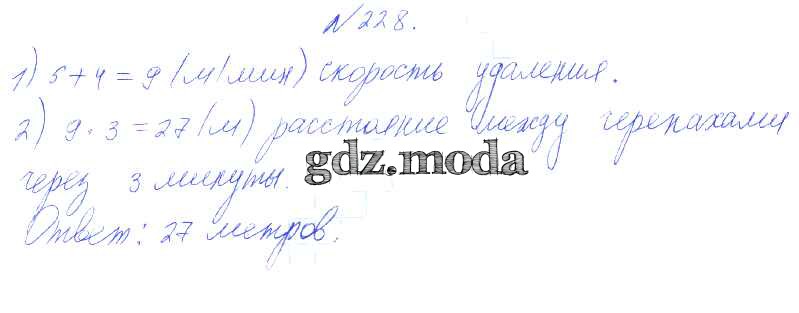 №228.
1) 5+4=9 (м/мин) скорость удаления.
2) 9·3=27 (м) расстояние между черепахами
через 3 минуты.
gdz.moda
Ответ: 27 метров.